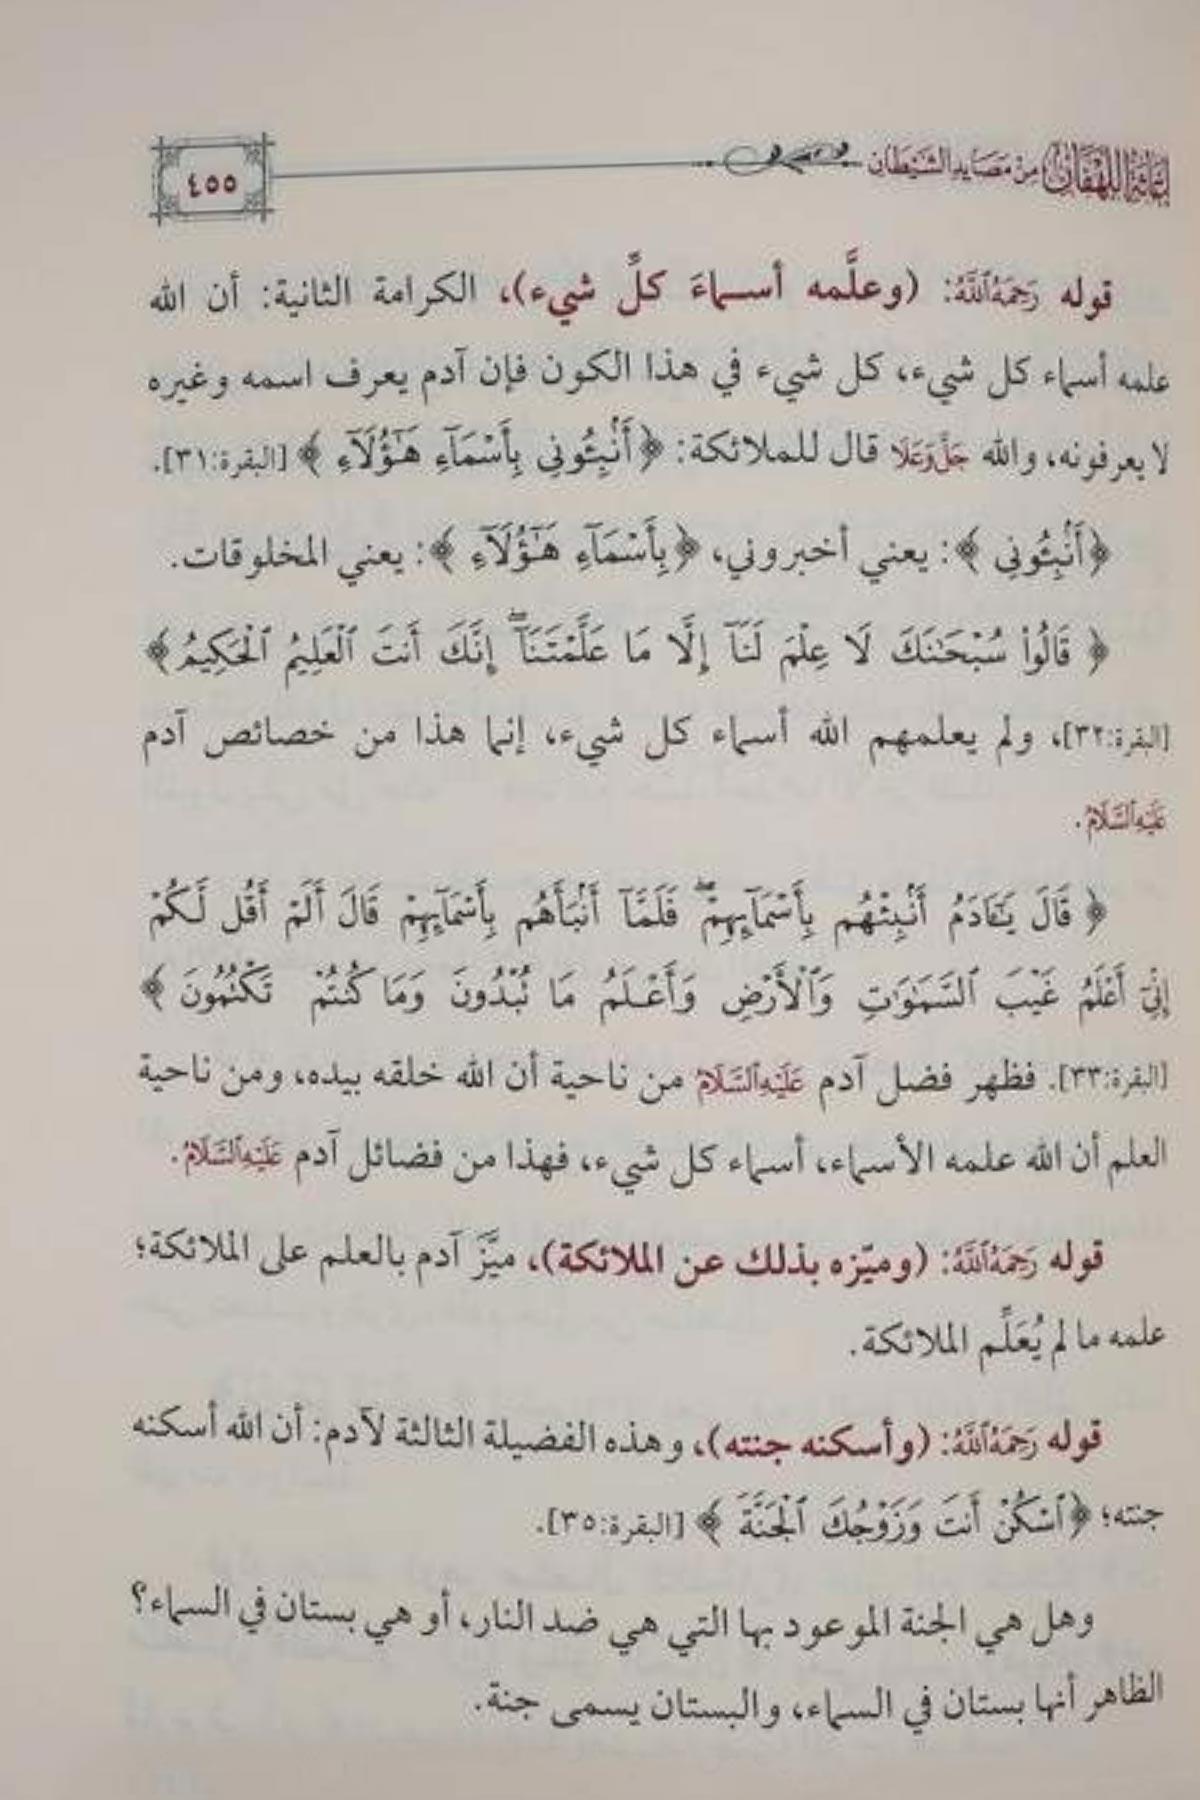 إغاثة اللهفان من مصايد الشيطان
٤٥٥
قوله رَحِمَهُ ٱللَّهُ: (وعلَّمه أسماءَ كلِّ شيء)، الكرامة الثانية: أن الله
علمه أسماء كل شيء، كل شيء في هذا الكون فإن آدم يعرف اسمه وغيره
لا يعرفونه، والله جَلَّ وَعَلَا قال للملائكة: ﴿أَنۢبِـُٔونِى بِأَسۡمَآءِ هَـٰٓؤُلَآءِ﴾ [البقرة:٣١].
﴿أَنۢبِـُٔونِى﴾: يعني أخبروني، ﴿بِأَسۡمَآءِ هَـٰٓؤُلَآءِ﴾: يعني المخلوقات.
﴿قَالُوا۟ سُبۡحَـٰنَكَ لَا عِلۡمَ لَنَآ إِلَّا مَا عَلَّمۡتَنَآۖ إِنَّكَ أَنتَ ٱلۡعَلِيمُ ٱلۡحَكِيمُ﴾
[البقرة:٣٢]، ولم يعلمهم الله أسماء كل شيء، إنما هذا من خصائص آدم
عَلَيْهِ ٱلسَّلَامُ.
﴿قَالَ يَـٰٓـَٔادَمُ أَنۢبِئۡهُم بِأَسۡمَآئِهِمۡۖ فَلَمَّآ أَنۢبَأَهُم بِأَسۡمَآئِهِمۡ قَالَ أَلَمۡ أَقُل لَّكُمۡ
إِنِّىٓ أَعۡلَمُ غَيۡبَ ٱلسَّمَـٰوَٰتِ وَٱلۡأَرۡضِ وَأَعۡلَمُ مَا تُبۡدُونَ وَمَا كُنتُمۡ تَكۡتُمُونَ﴾
[البقرة:٣٣]. فظهر فضل آدم عَلَيْهِ ٱلسَّلَامُ من ناحية أن الله خلقه بيده، ومن ناحية
العلم أن الله علمه الأسماء، أسماء كل شيء، فهذا من فضائل آدم عَلَيْهِ ٱلسَّلَامُ.
قوله رَحِمَهُ ٱللَّهُ: (وميّزه بذلك عن الملائكة)، ميَّزَ آدم بالعلم على الملائكة؛
علمه ما لم يُعَلِّم الملائكة.
قوله رَحِمَهُ ٱللَّهُ: (وأسكنه جنته)، وهذه الفضيلة الثالثة لآدم: أن الله أسكنه
جنته؛ ﴿ٱسۡكُنۡ أَنتَ وَزَوۡجُكَ ٱلۡجَنَّةَ﴾ [البقرة:٣٥].
وهل هي الجنة الموعود بها التي هي ضد النار، أو هي بستان في السماء؟
الظاهر أنها بستان في السماء، والبستان يسمى جنة.